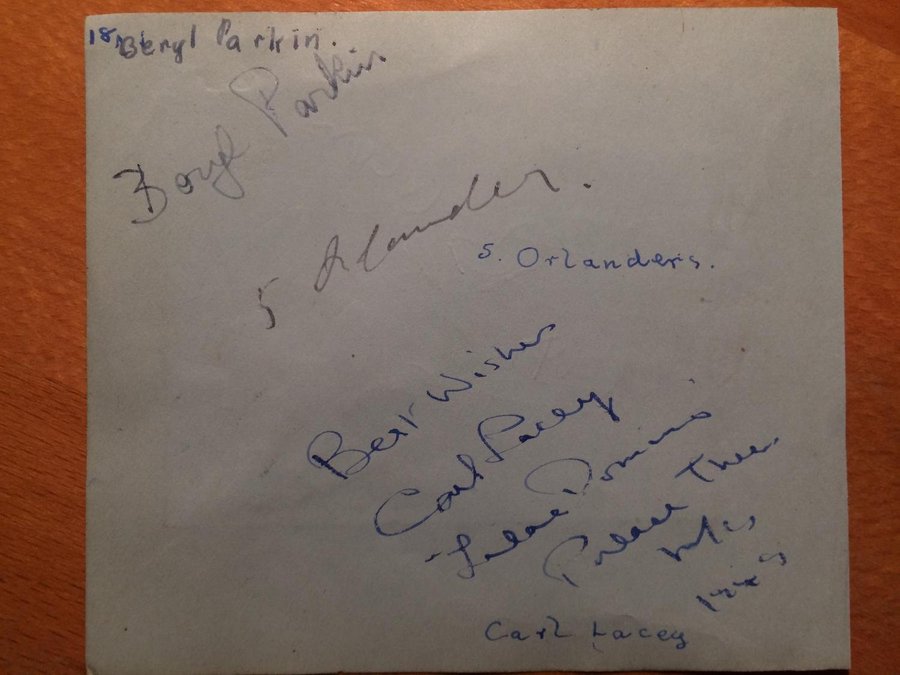 18, Beryl Parkin.
Beryl Parkin
S Orlanders.
S. Orlanders.
Best Wishes
Carl Lacey
Lilac Domino
Palace Theatre
Carl Lacey